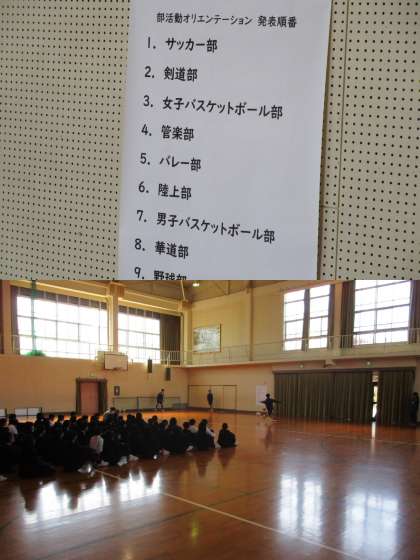 部活動オリエンテーション 発表順番
1. サッカー部
2. 剣道部
3. 女子バスケットボール部
4. 管楽部
5. バレー部
6. 陸上部
7. 男子バスケットボール部
8. 華道部
9. 野球部